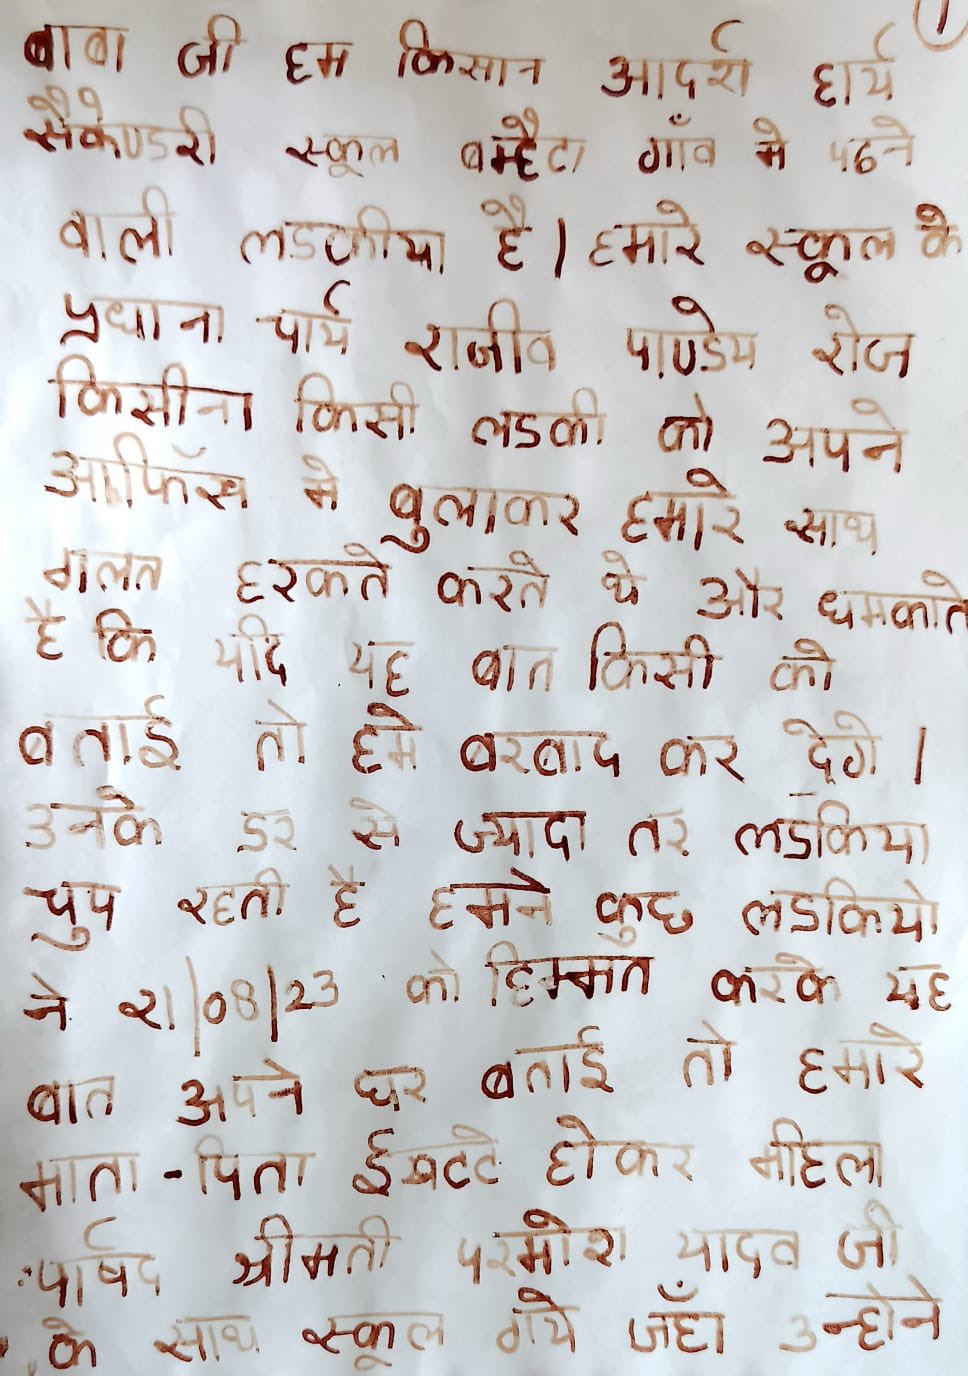 1
बाबा जी हम किसान आदर्श हार्य
सैकेण्डरी स्कूल बम्हैटा गाँव मे पढने
वाली लडकीया है। हमारे स्कूल के
प्रधाना चार्य राजीव पाण्डेय रोज
किसीना किसी लडकी को अपने
आफिॅस मे बुलाकर हमारे साथ
गलत हरकते करते थे और धमकाते
है कि यदि यह बात किसी को
बताई तो हमे बरबाद कर देगे।
उनके डर से ज्यादा तर लडकिया
चुप रहती है हमने कुछ लडकियो
ने 21/08/23 को हिम्मत करके यह
बात अपने घर बताई तो हमारे
माता-पिता ईखटटे होकर महिला
पार्षद श्रीमती परमोश यादव जी
के साथ स्कूल गये जहाँ उन्होने